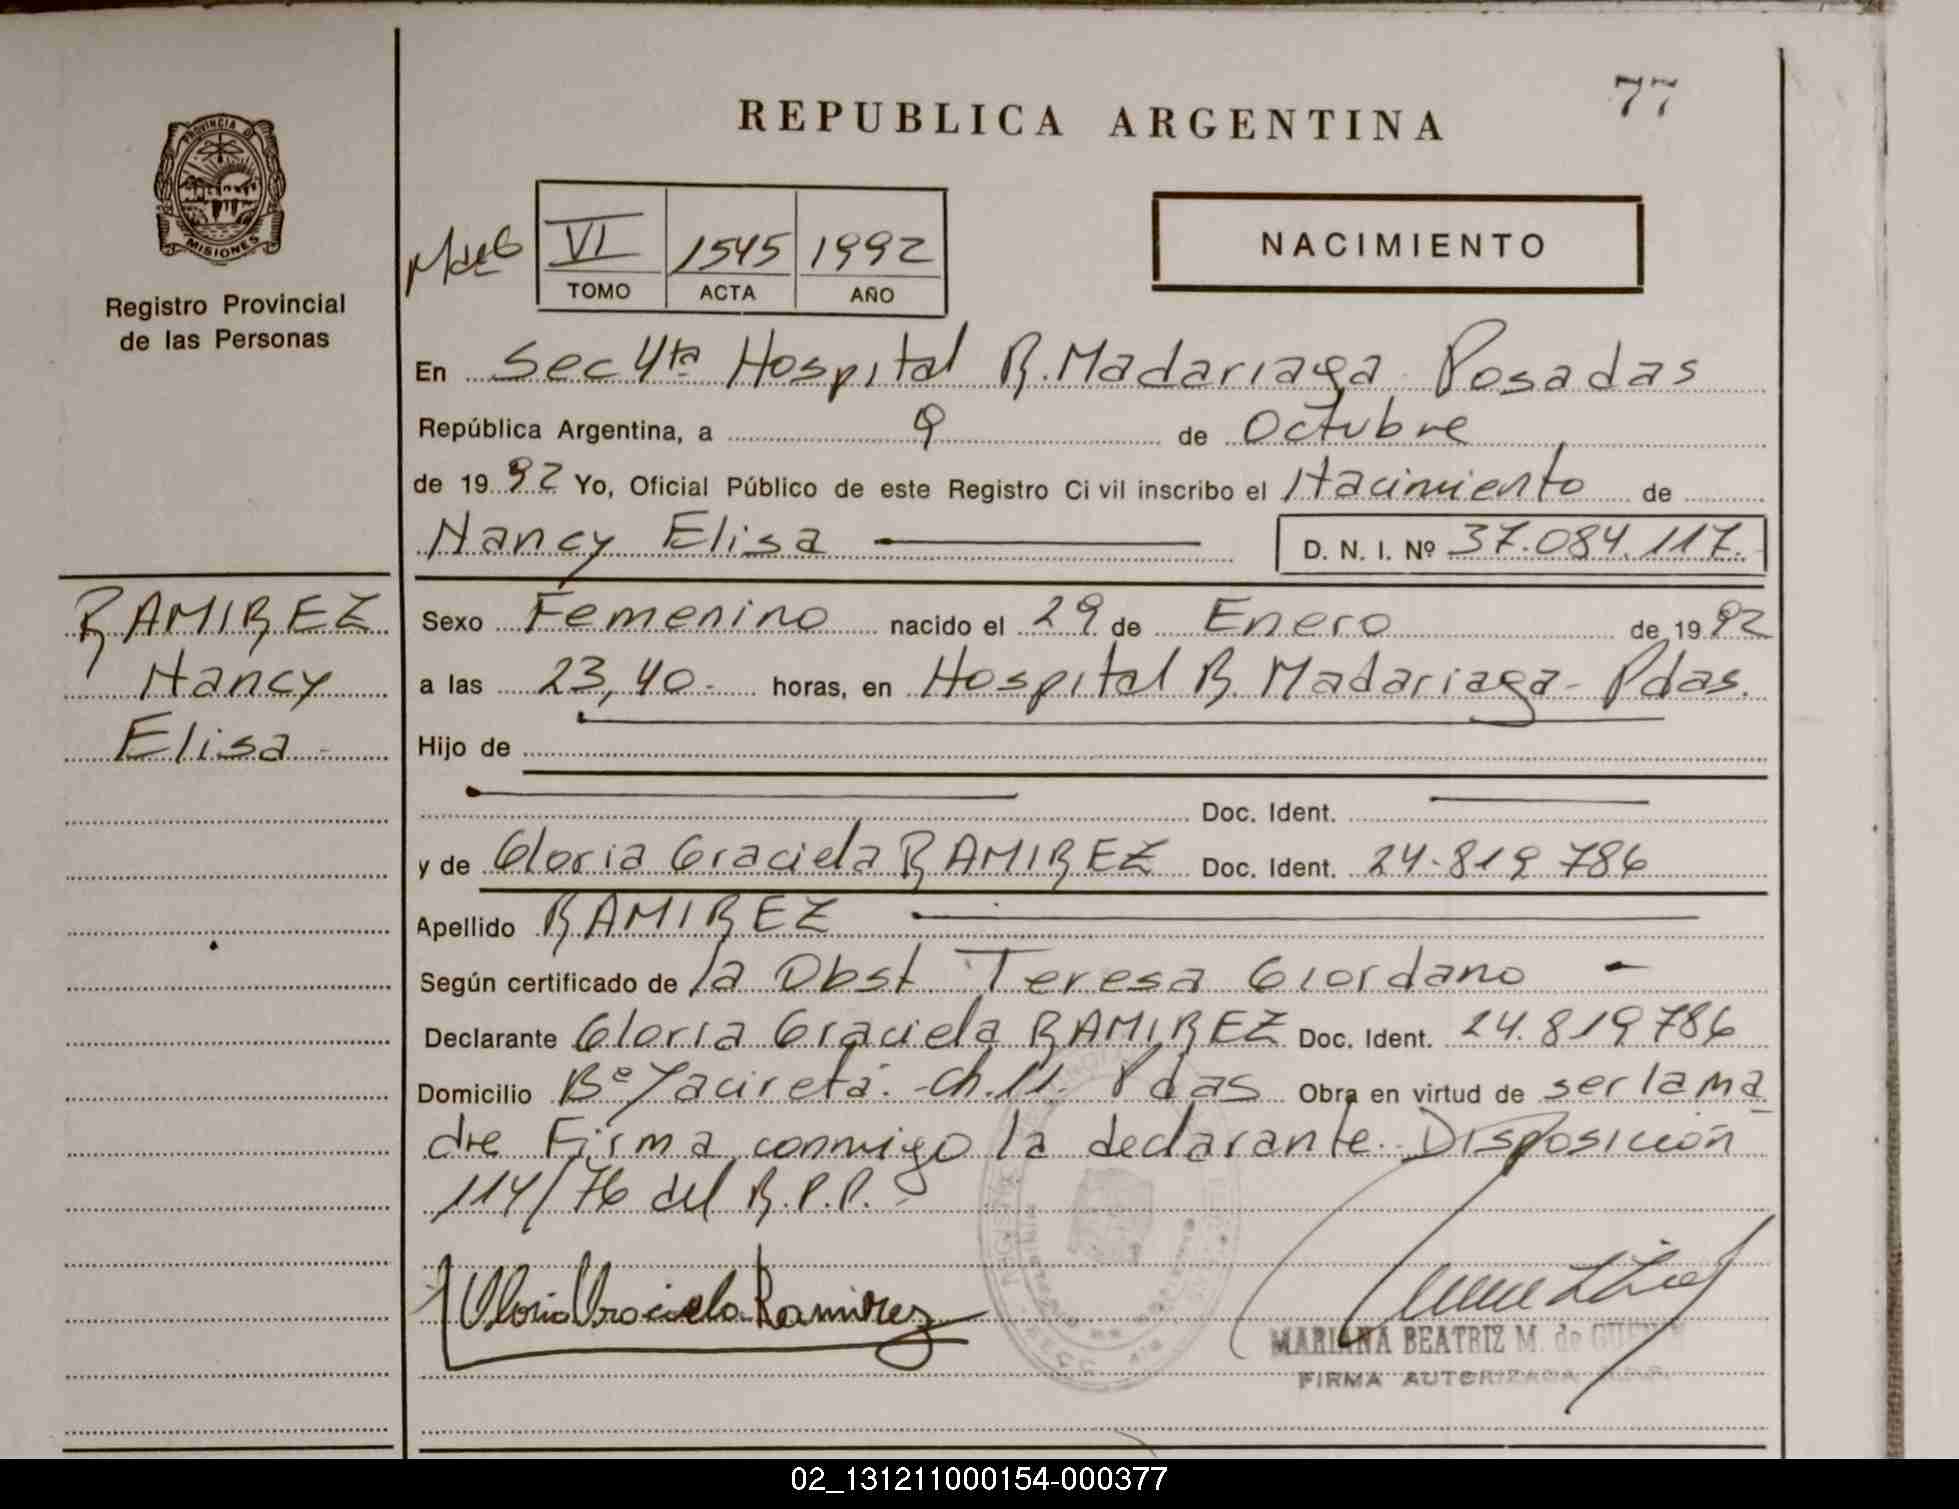 77
REPUBLICA ARGENTINA
PROVINCIA DE
MISIONES
Registro Provincial
de las Personas
VI 1545 1992
TOMO ACTA AÑO
NACIMIENTO
En Sec 4ta Hospital R. Madariaga Posadas
República Argentina, a 9 de Octubre
de 1992 Yo, Oficial Público de este Registro Civil inscribo el Nacimiento de
Nancy Elisa D. N. I. Nº 37.084.117.
RAMIREZ
Nancy
Elisa
Sexo Femenino nacido el 29 de Enero de 1992
a las 23,40 horas, en Hospital R. Madariaga - Pdas.
Hijo de
Doc. Ident.
y de Gloria Graciela RAMIREZ Doc. Ident. 24.819 786
Apellido RAMIREZ
Según certificado de la Obst Teresa Giordano
Declarante Gloria Graciela RAMIREZ Doc. Ident. 24.819 786
Domicilio Bº Yacireta. Ch. 11. Pdas Obra en virtud de ser la ma
dre Firma conmigo la declarante. Disposición
114/76 del R.P.P.
Gloria Graciela Ramirez
MARIANA BEATRIZ M. de
FIRMA AUTORIZADA
02_131211000154-000377